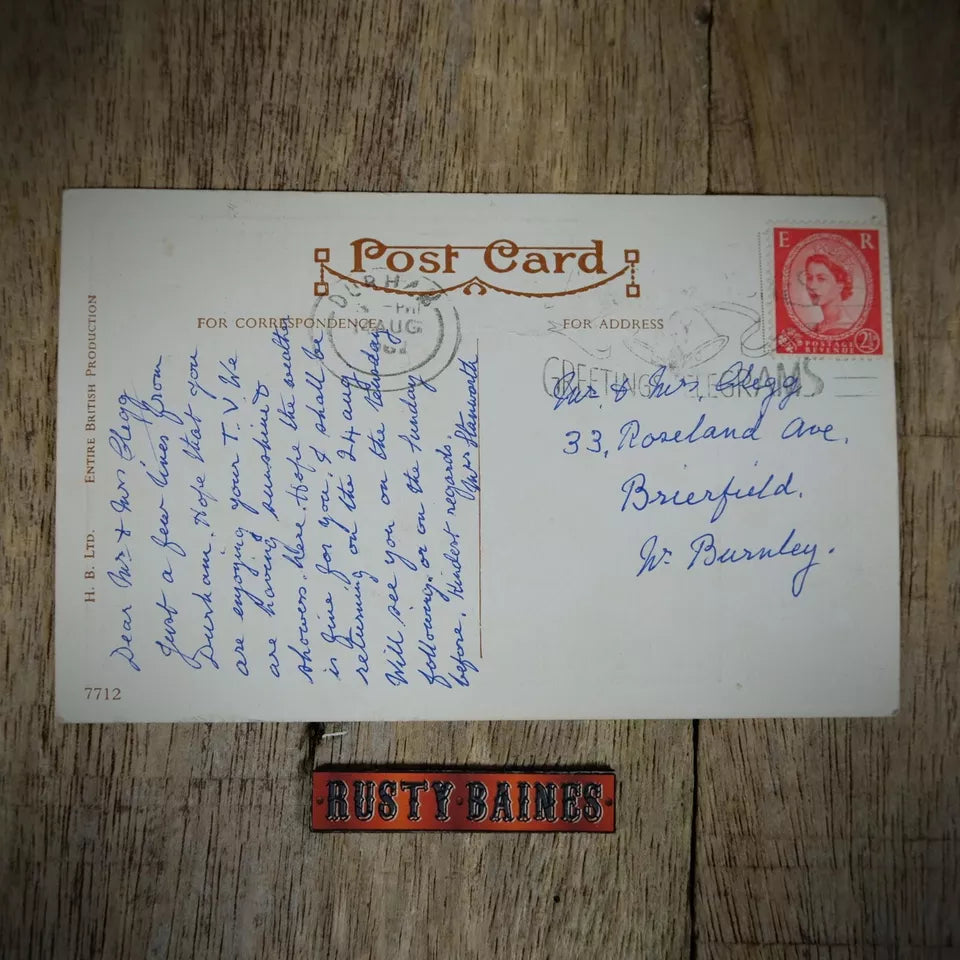 Post Card
FOR CORRESPONDENCE
FOR ADDRESS
E R
POSTAGE
REVENUE
2½
DURHAM
PM
AUG
GREETINGS TELEGRAMS
ENTIRE BRITISH PRODUCTION
H. B. LTD.
7712
Dear Mr & Mrs Clegg
Just a few lines from
Durham. Hope that you
are enjoying your T.V. We
are having sunshine &
showers. here. Hope the weather
is fine for you. I shall be
returning on the 24 aug
Will see you on the Tuesday
following. or on the Sunday
before. Kindest regards.
Mrs Stanworth
Mr. & Mrs Clegg
33, Roseland Ave.
Brierfield.
Nr. Burnley.
RUSTY·BAINES